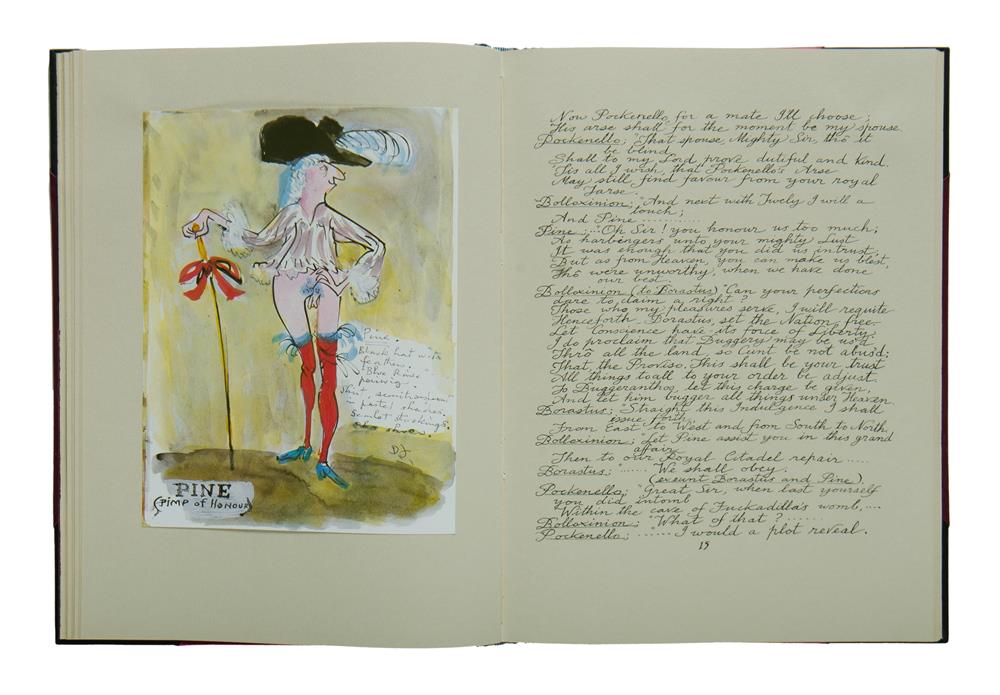 Pine.
Black hat with
feather.
"Blue Rinse"
periwig.
Shirt, semitransparent
in pastel shades.
Scarlet stockings.
DJ
PINE
(PIMP of HONOUR)
Now Pockenello for a mate I'll choose;
His arse shall for the moment be my spouse.
Pockenello; "That spouse, Mighty Sir, tho it
be blind,
Shall to my Lord prove dutiful and kind.
'Tis all I wish, that Pockenello's Arse
May still find favour from your royal
Tarse.
Bolloxinion; "And next with Twely I will a
touch;
And Pine ............
Pine; ..."Oh Sir! you honour us too much;
As harbengers unto your mighty Lust
It was enough that you did us intrust;
But as from Heaven, you can make us blest,
Tho were unworthy, when we have done
our best.
Bolloxinion (to Borastus) "Can your perfections
dare to claim a right?
Those who my pleasures serve, I will requite
Henceforth Borastus, set the Nation free.
Let Conscience have its force of Liberty.
I do proclaim that Buggery may be us'd
Thrō all the land, so Cunt be not abus'd;
That, the Proviso. This shall be your trust
All things to all to your order be adjust.
To Buggeranthos, let this charge be given,
And let him bugger all things under Heaven.
Borastus; "Straight this Indulgence I shall
issue forth
From East to West and from South to North,
Bolloxinion; Let Pine assist you in this grand
affair,
Then to our Royal Citadel repair .....
Borastus; "...... We shall obey.
(exeunt Borastus and Pine).
Pockenello; "Great Sir, when last yourself
you did intomb
"Within the cave of Fuckadilla's womb, ....
Bolloxinion; "What of that? ......
Pockenello; ...... I would a plot reveal.
15